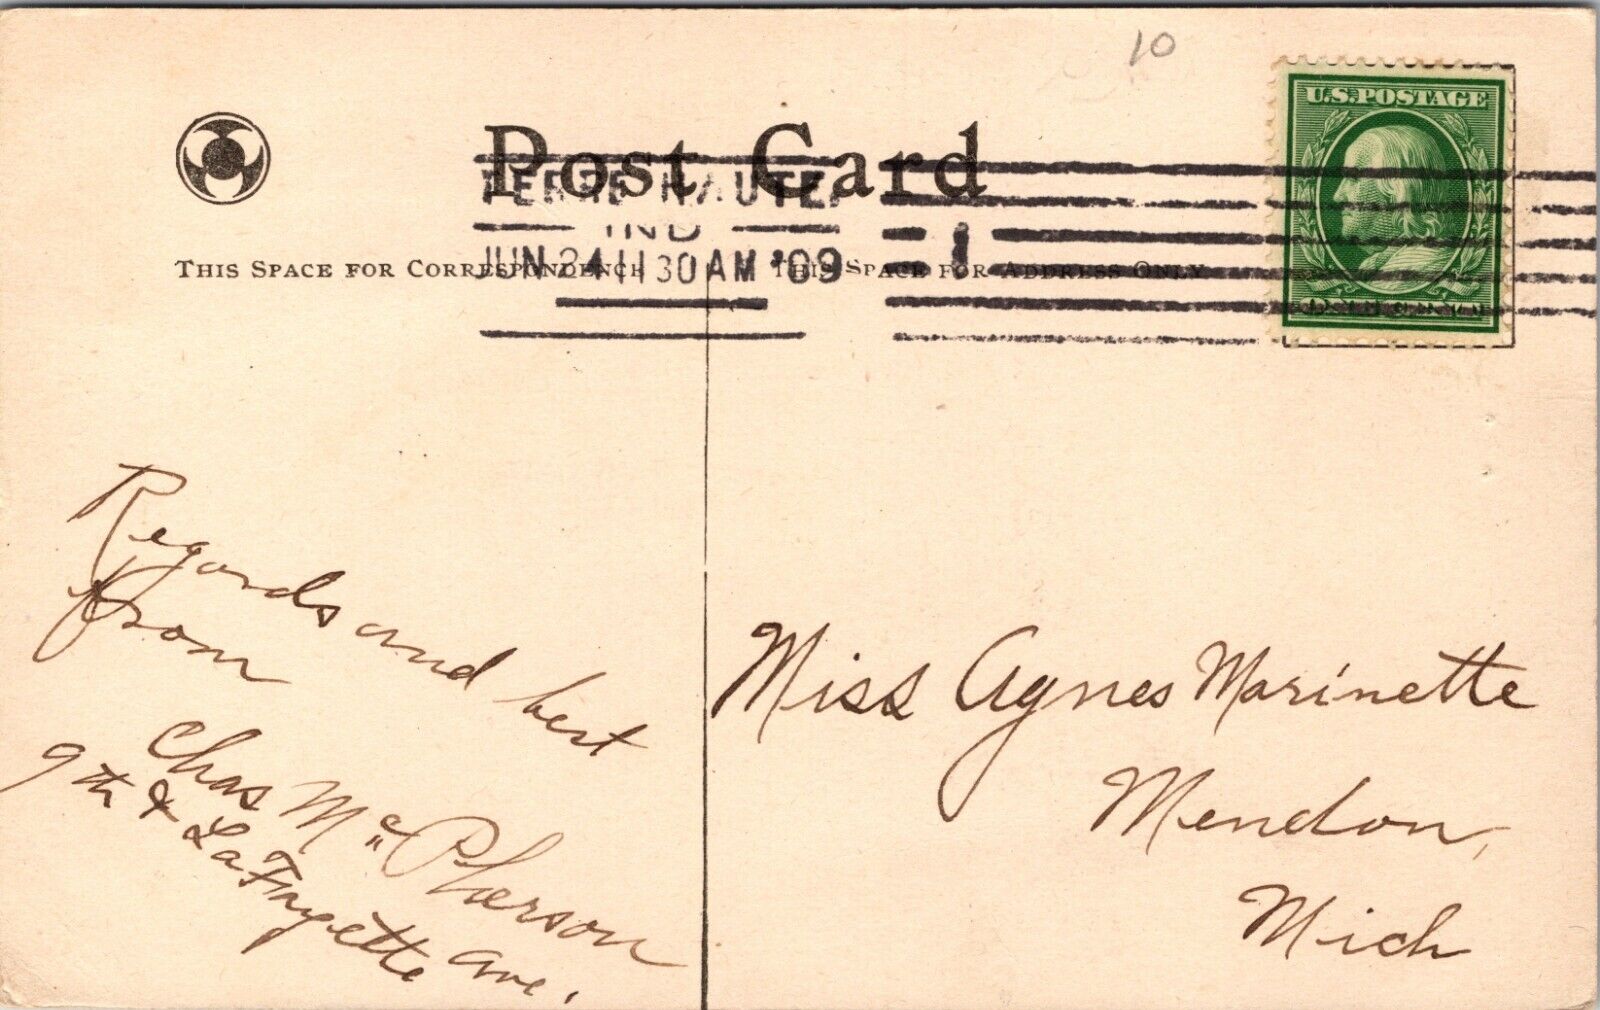 10
U.S.POSTAGE
Post Card
TERRE HAUTE,
IND
JUN 24 11 30 AM '09
1
THIS SPACE FOR CORRESPONDENCE
THIS SPACE FOR ADDRESS ONLY
Regards and best
from
Chas McPherson
9th & LaFayette Ave.
Miss Agnes Marinette
Mendon,
Mich